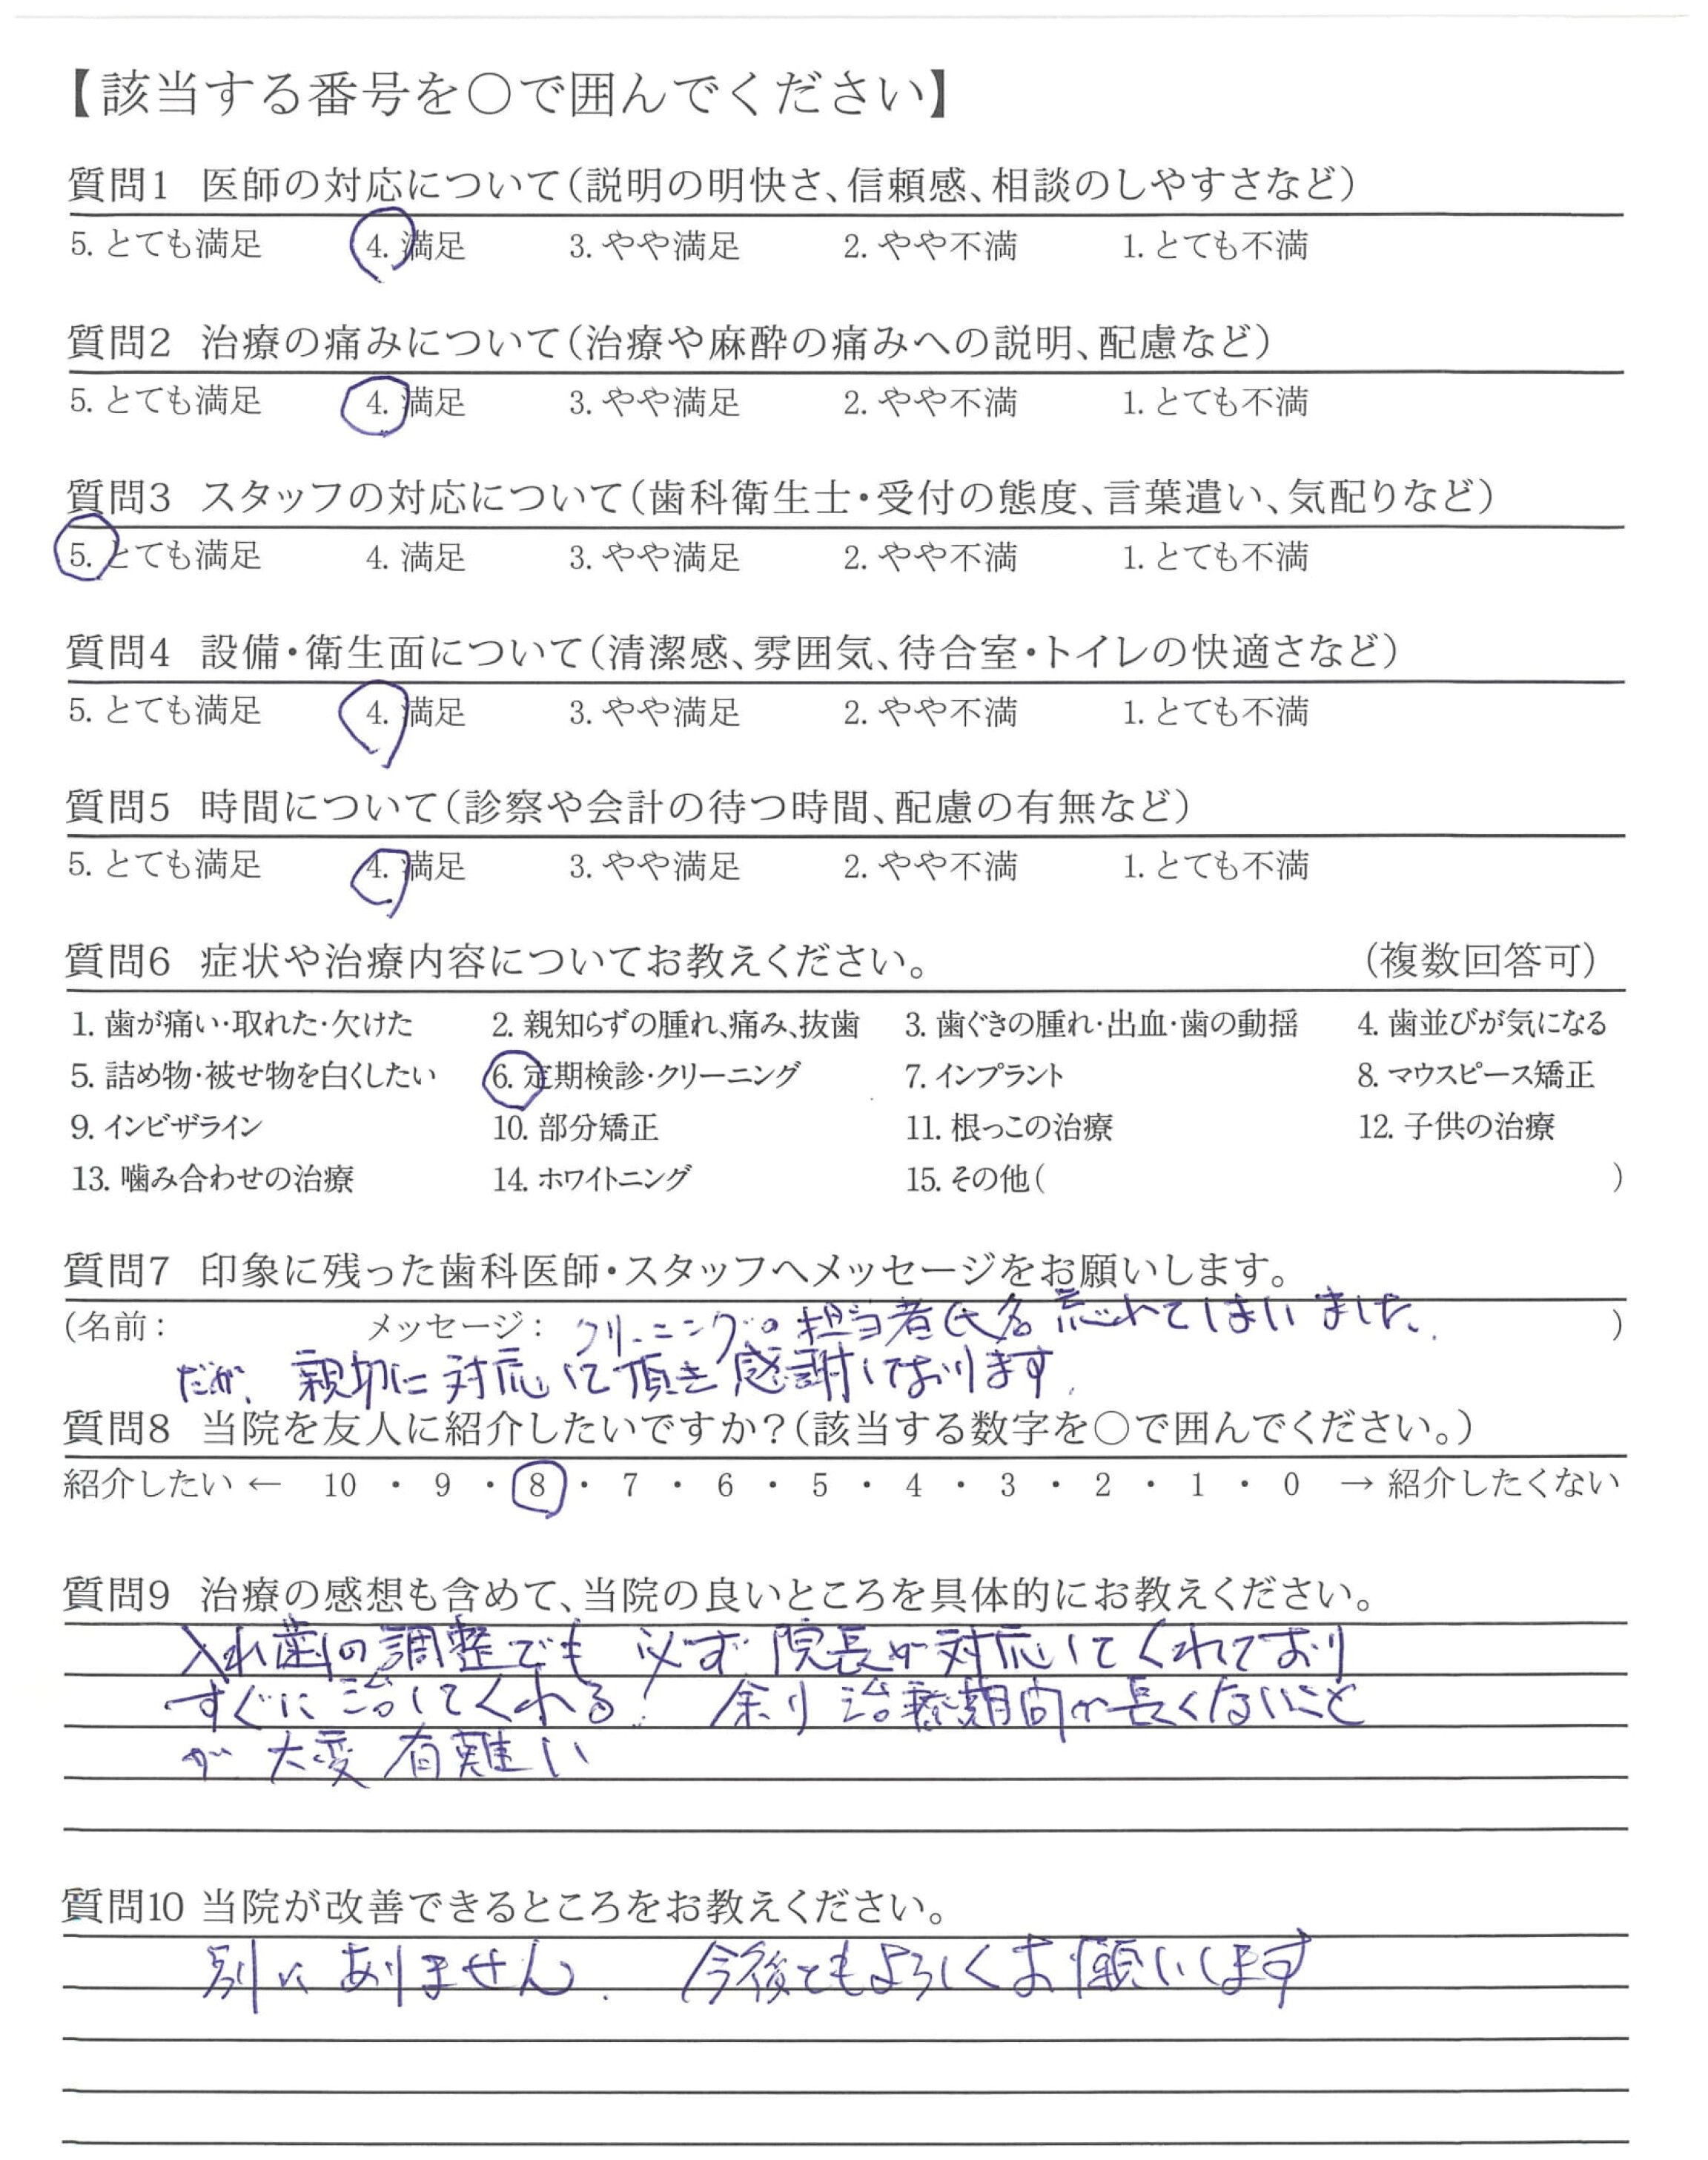 【該当する番号を○で囲んでください】
質問1 医師の対応について(説明の明快さ、信頼感、相談のしやすさなど)
5. とても満足 4. 満足 3. やや満足 2. やや不満 1. とても不満
質問2 治療の痛みについて(治療や麻酔の痛みへの説明、配慮など)
5. とても満足 4. 満足 3. やや満足 2. やや不満 1. とても不満
質問3 スタッフの対応について(歯科衛生士・受付の態度、言葉遣い、気配りなど)
5. とても満足 4. 満足 3. やや満足 2. やや不満 1. とても不満
質問4 設備・衛生面について(清潔感、雰囲気、待合室・トイレの快適さなど)
5. とても満足 4. 満足 3. やや満足 2. やや不満 1. とても不満
質問5 時間について(診察や会計の待つ時間、配慮の有無など)
5. とても満足 4. 満足 3. やや満足 2. やや不満 1. とても不満
質問6 症状や治療内容についてお教えください。 (複数回答可)
1. 歯が痛い・取れた・欠けた 2. 親知らずの腫れ、痛み、抜歯 3. 歯ぐきの腫れ・出血・歯の動揺 4. 歯並びが気になる
5. 詰め物・被せ物を白くしたい 6. 定期検診・クリーニング 7. インプラント 8. マウスピース矯正
9. インビザライン 10. 部分矯正 11. 根っこの治療 12. 子供の治療
13. 噛み合わせの治療 14. ホワイトニング 15. その他( )
質問7 印象に残った歯科医師・スタッフへメッセージをお願いします。
(名前: メッセージ: クリーニングの担当者氏名忘れてしまいました。 )
だが、親切に対応して頂き感謝しております。
質問8 当院を友人に紹介したいですか?(該当する数字を○で囲んでください。)
紹介したい ← 10 ・ 9 ・ 8 ・ 7 ・ 6 ・ 5 ・ 4 ・ 3 ・ 2 ・ 1 ・ 0 → 紹介したくない
質問9 治療の感想も含めて、当院の良いところを具体的にお教えください。
入れ歯の調整でも 必ず 院長が対応してくれており
すぐに治してくれる! 余り治療期間が長くないこと
が 大変 有難い
質問10 当院が改善できるところをお教えください。
別に ありません. 今後ともよろしくお願いします